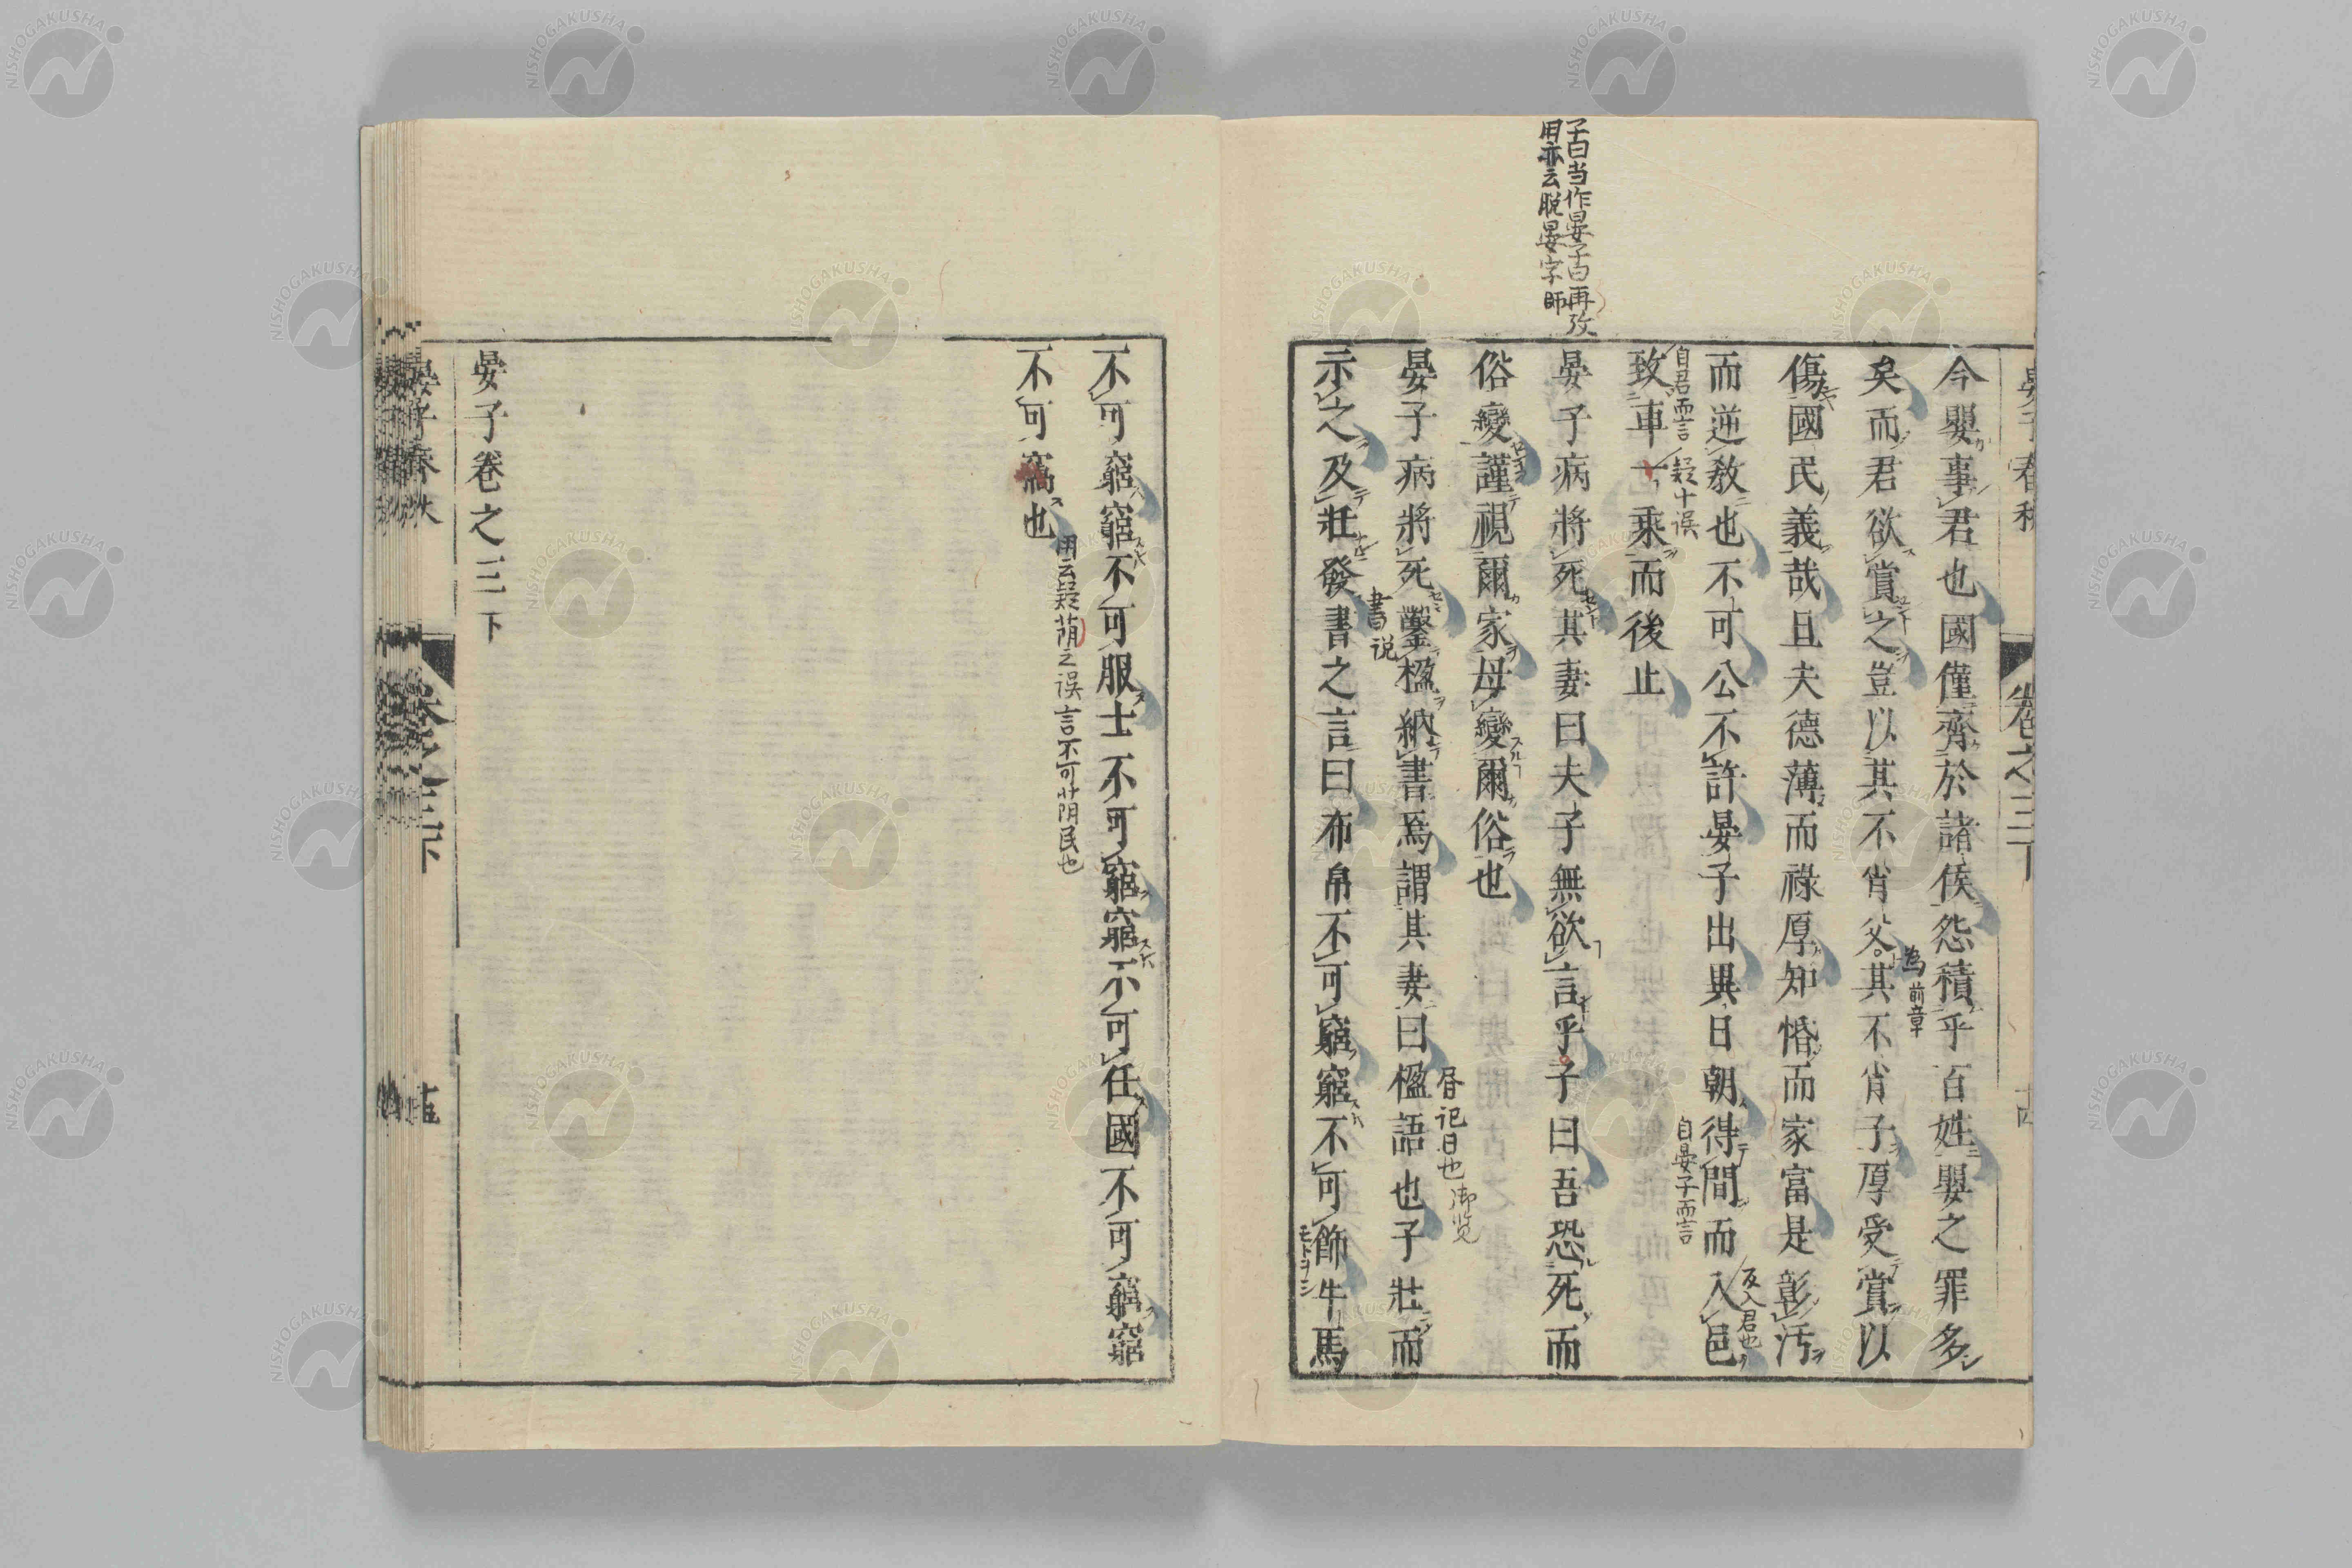 子曰当作晏子曰再攷
用亦云脱晏字 師
今嬰事君也國僅齊於諸侯怨積乎百姓嬰之罪多
矣而君欲賞之豈以其不肖父其不肖子厚受賞以
為前章
傷國民義哉且夫德薄而祿厚知惛而家富是彰汚
而逆敎也不可公不許晏子出異日朝得間而入邑
反入君也
自晏子而言
致車一乘而後止
自君而言
疑十误
晏子病將死其妻曰夫子無欲言乎子曰吾恐死而
俗變謹視爾家母變爾俗也
晏子病將死鑿楹納書焉謂其妻曰楹語也子壯而
昏记曰也 御览
示之及壯發書之言曰布帛不可窮窮不可飾牛馬
書说
不可窮窮不可服士不可窮窮不可任國不可窮窮
不可竊也
用云疑荫之误 言不可荫民也
晏子卷之三下
晏子春秋
卷之三下
NISHOGAKUSHA